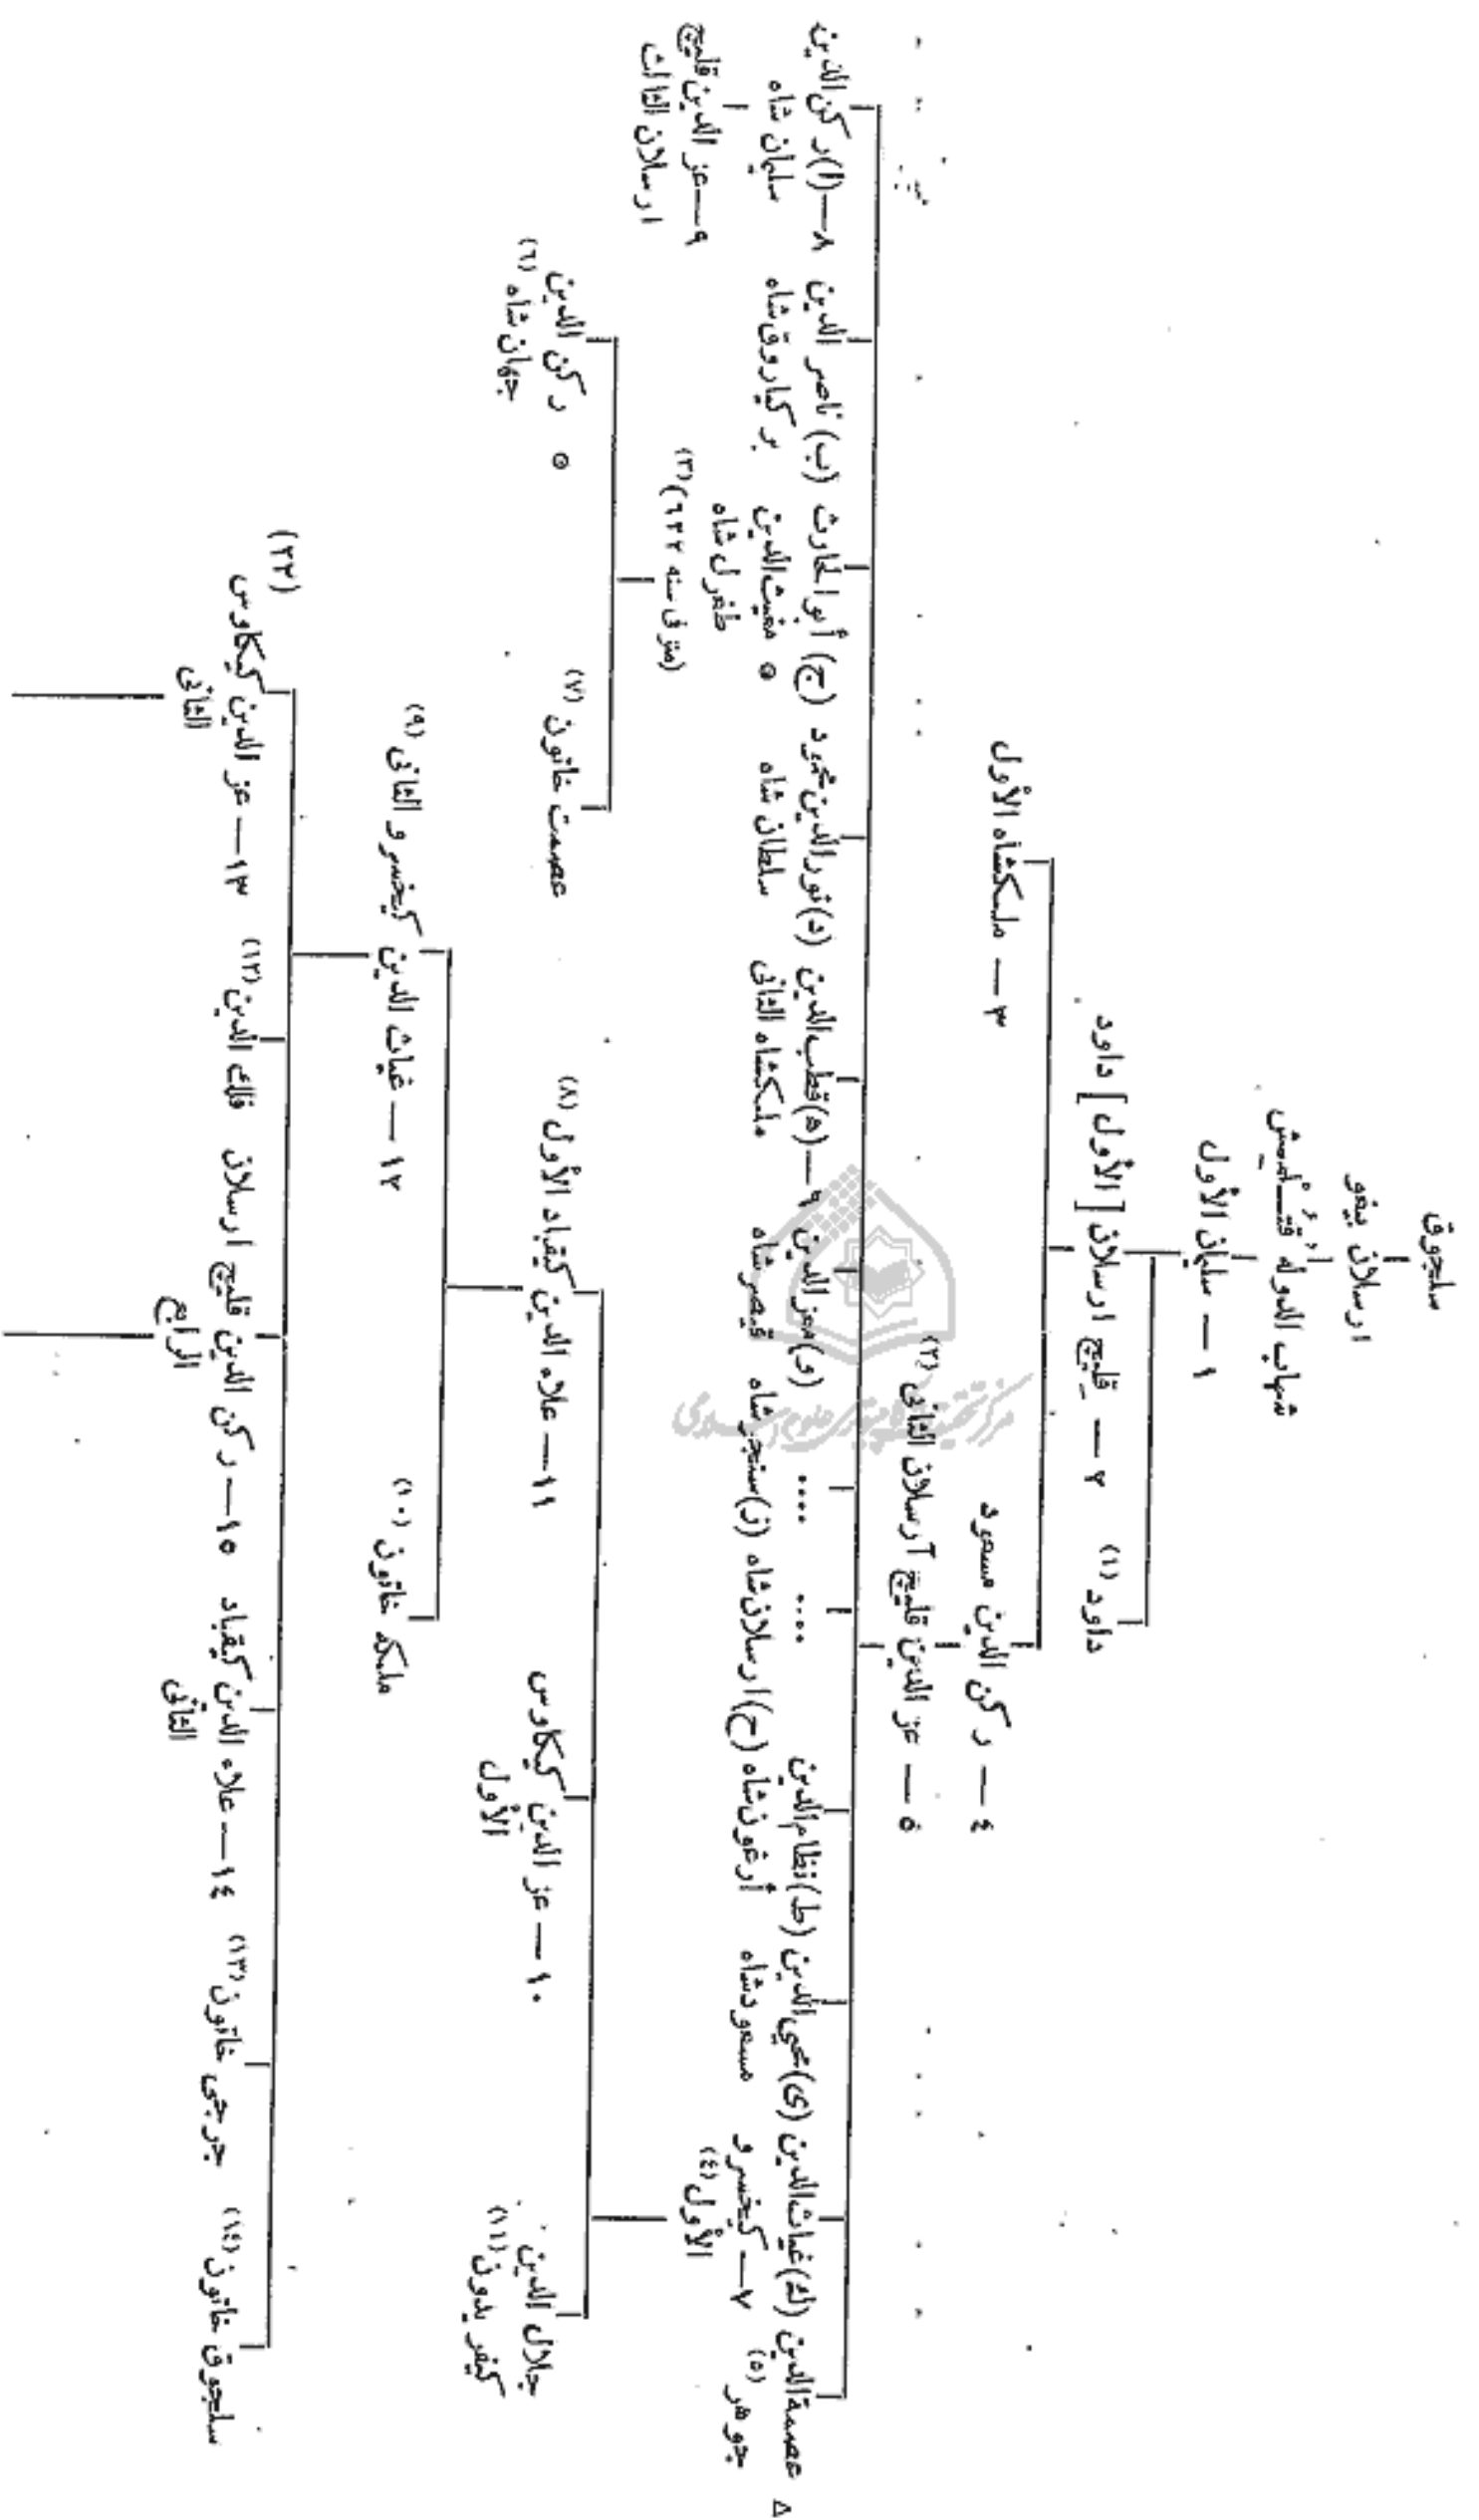 سلجوق
ارسلان بيغو
شهاب الدوله قُتُلمِش
١ — سليمان الأول
٢ — قليج ارسلان [الأول] داود
داود (١)
٣ — ملكشاه الأول
٤ — ركن الدين مسعود
٥ — عز الدين قليج آرسلان الثانى (٢)
٨—(ا)ركن الدين
سليمان شاه
(ب) ناصر الدين
بركياروق شاه
(ج) أبو الحارث
٥ مغيث الدين
طغرل شاه
(متوفى سنه ٦٢٢) (٣)
(د) نور الدين محمود
سلطان شاه
٦—(ه) قطب الدين
ملكشاه الثانى
(و) معز الدين
قيصر شاه
....
(ز) سنجر شاه
....
(ح) ارسلان شاه
(ط) نظام الدين
أرغون شاه
(ى) محيى الدين
مسعود شاه
(ك) غياث الدين
٧— كيخسرو
الأول (٤)
△ عصمة الدين
جوهر (٥)
٩—عز الدين قليج
ارسلان الثالث
٥ ركن الدين
جهان شاه (٦)
عصمت خاتون (٧)
١١—علاء الدين كيقباد الأول (٨)
١٠— عز الدين كيكاوس
الأول
جلال الدين
كيفريدون (١١)
١٢ — غياث الدين كيخسرو الثانى (٩)
ملكه خاتون (١٠)
١٣ — عز الدين كيكاوس
الثانى
فلك الدين (١٢)
١٥— ركن الدين قليج ارسلان
الرابع
١٤— علاء الدين كيقباد
الثانى
جرجى خاتون (١٣)
سلجوق خاتون (١٤)
(٢٢)